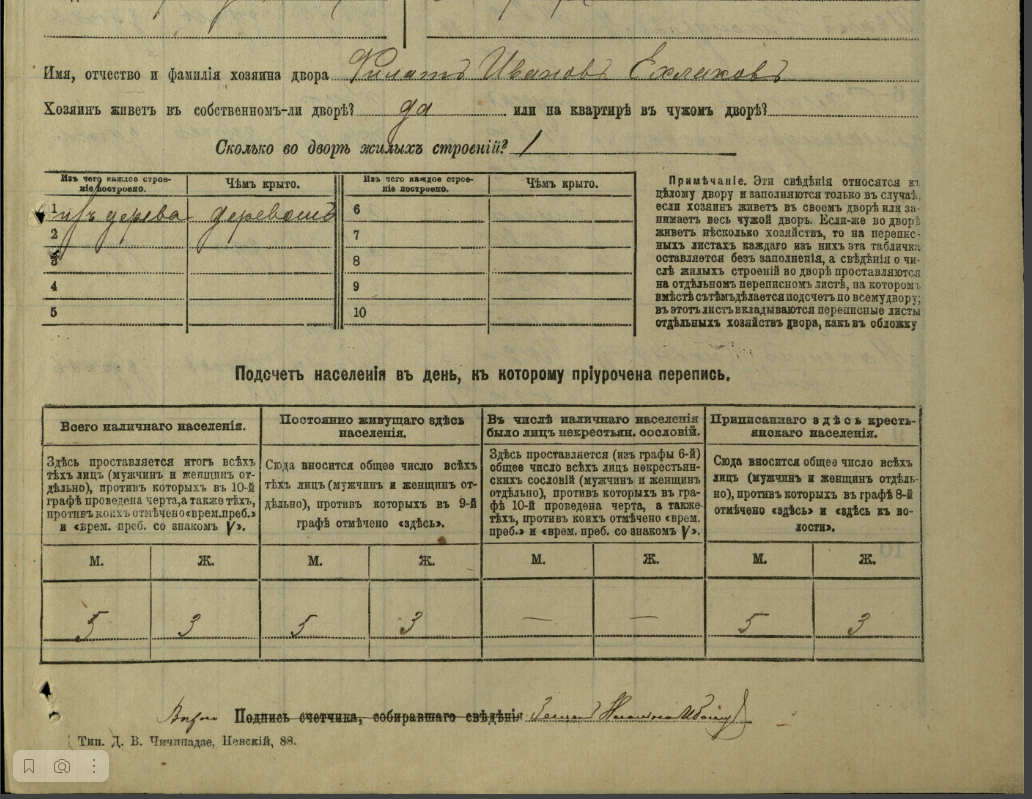 Имя, отчество и фамилія хозяина двора Филатъ Ивановъ Ехлаковъ
Хозяинъ живетъ въ собственномъ-ли дворѣ? да или на квартирѣ въ чужомъ дворѣ?
Сколько во дворѣ жилыхъ строеній? 1
Изъ чего каждое строе-
ніе построено.
Чѣмъ крыто.
Изъ чего каждое строе-
ніе построено.
Чѣмъ крыто.
1 изъ дерева деревомъ
2
3
4
5
6
7
8
9
10
Примѣчаніе. Эти свѣдѣнія относятся къ
цѣлому двору и заполняются только въ случаѣ,
если хозяинъ живетъ въ своемъ дворѣ или за-
нимаетъ весь чужой дворъ. Если-же во дворѣ
живетъ нѣсколько хозяйствъ, то на перепис-
ныхъ листахъ каждаго изъ нихъ эта табличка
оставляется безъ заполненія, а свѣдѣнія о чи-
слѣ жилыхъ строеній во дворѣ проставляются
на отдѣльномъ переписномъ листѣ, на которомъ
вмѣстѣ съ тѣмъ дѣлается подсчетъ по всему двору;
въ этотъ листъ вкладываются переписные листы
отдѣльныхъ хозяйствъ двора, какъ въ обложку
Подсчетъ населенія въ день, къ которому пріурочена перепись.
Всего наличнаго населенія.
Здѣсь проставляется итогъ всѣхъ
тѣхъ лицъ (мужчинъ и женщинъ от-
дѣльно), противъ которыхъ въ 10-й
графѣ проведена черта, а также тѣхъ,
противъ коихъ отмѣчено «врем. преб.»
и «врем. преб. со знакомъ V».
М. Ж.
5 3
Постоянно живущаго здѣсь
населенія.
Сюда вносится общее число всѣхъ
тѣхъ лицъ (мужчинъ и женщинъ от-
дѣльно), противъ которыхъ въ 9-й
графѣ отмѣчено «здѣсь».
М. Ж.
5 3
Въ числѣ наличнаго населенія
было лицъ некрестьян. сословій.
Здѣсь проставляется (изъ графы 6-й)
общее число всѣхъ лицъ некрестьян-
скихъ сословій (мужчинъ и женщинъ
отдѣльно), противъ которыхъ въ гра-
фѣ 10-й проведена черта, а также
тѣхъ, противъ коихъ отмѣчено «врем.
преб.» и «врем. преб. со знакомъ V».
М. Ж.
— —
Приписаннаго здѣсь кресть-
янскаго населенія.
Сюда вносится общее число всѣхъ
лицъ (мужчинъ и женщинъ отдѣль-
но), противъ которыхъ въ графѣ 8-й
отмѣчено «здѣсь» и «здѣсь къ во-
лости».
М. Ж.
5 3
Подпись счетчика, собиравшаго свѣдѣнія
Тип. Д. В. Чичинадзе, Невскій, 88.